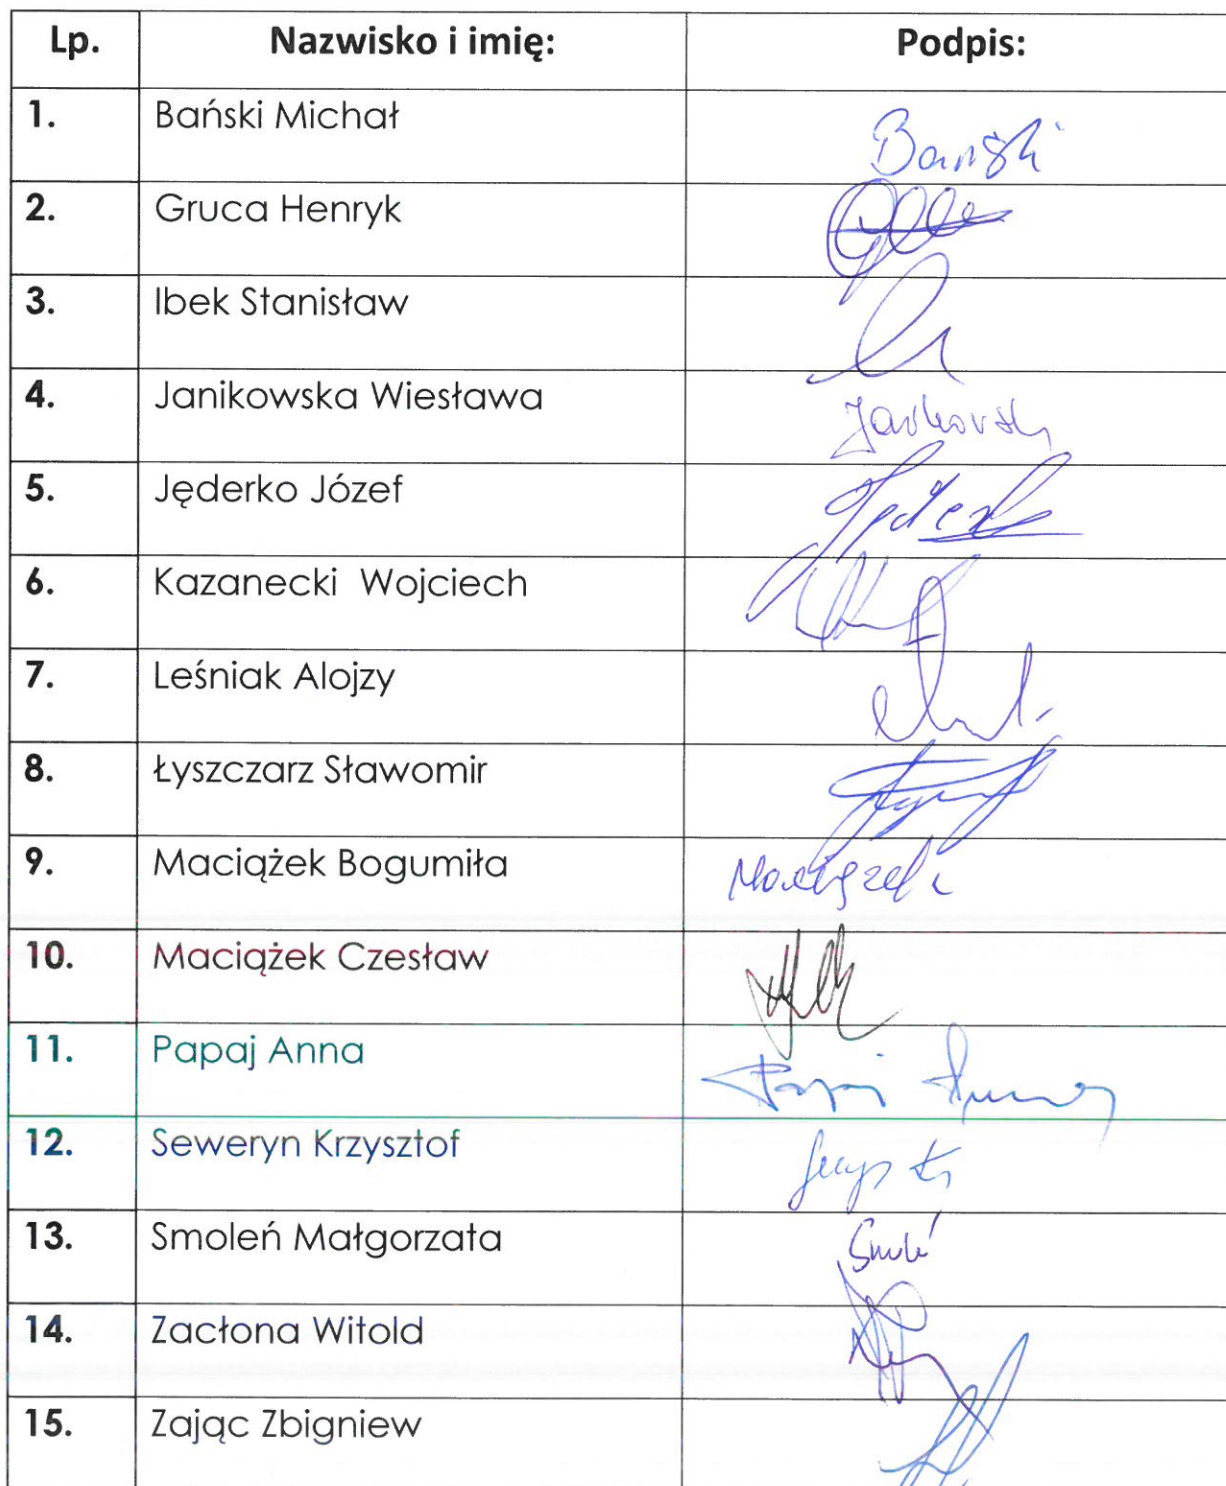 Lp. Nazwisko i imię: Podpis:
1. Bański Michał Bański
2. Gruca Henryk
3. Ibek Stanisław
4. Janikowska Wiesława
5. Jęderko Józef
6. Kazanecki Wojciech
7. Leśniak Alojzy
8. Łyszczarz Sławomir
9. Maciążek Bogumiła
10. Maciążek Czesław
11. Papaj Anna Papaj Anna
12. Seweryn Krzysztof
13. Smoleń Małgorzata
14. Zacłona Witold
15. Zając Zbigniew